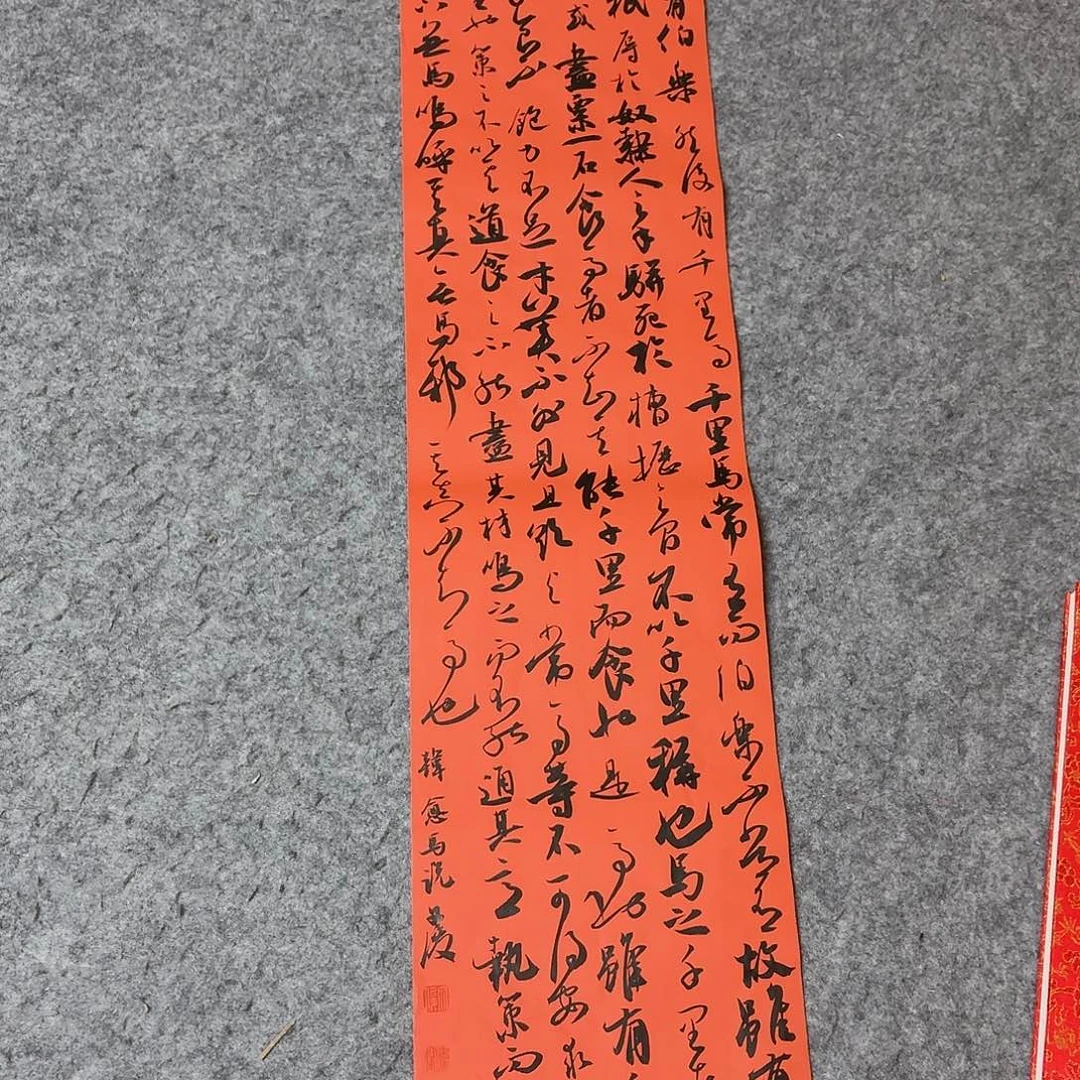 有伯樂然後有千里馬千里馬常有而伯樂不常有故雖有
祇辱於奴隸人之手駢死於槽櫪之間不以千里稱也馬之千里者
或盡粟一石食馬者不知其能千里而食也是馬也雖有
食不飽力不足才美不外見且欲與常馬等不可得安求
也策之不以其道食之不能盡其材鳴之而不能通其意執策而
下無馬嗚呼其真無馬邪其真不知馬也
韓愈馬說